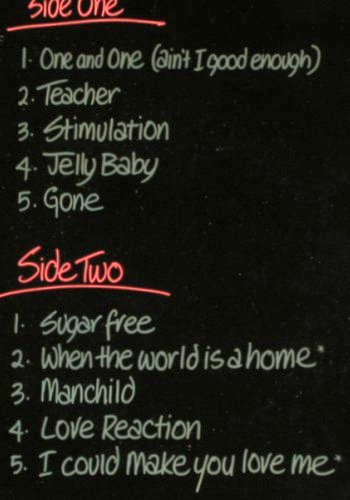 Side One
1. One and One (ain't I good enough)
2. Teacher
3. Stimulation
4. Jelly Baby
5. Gone
Side Two
1. Sugar free
2. When the world is a home*
3. Manchild
4. Love Reaction
5. I could make you love me*